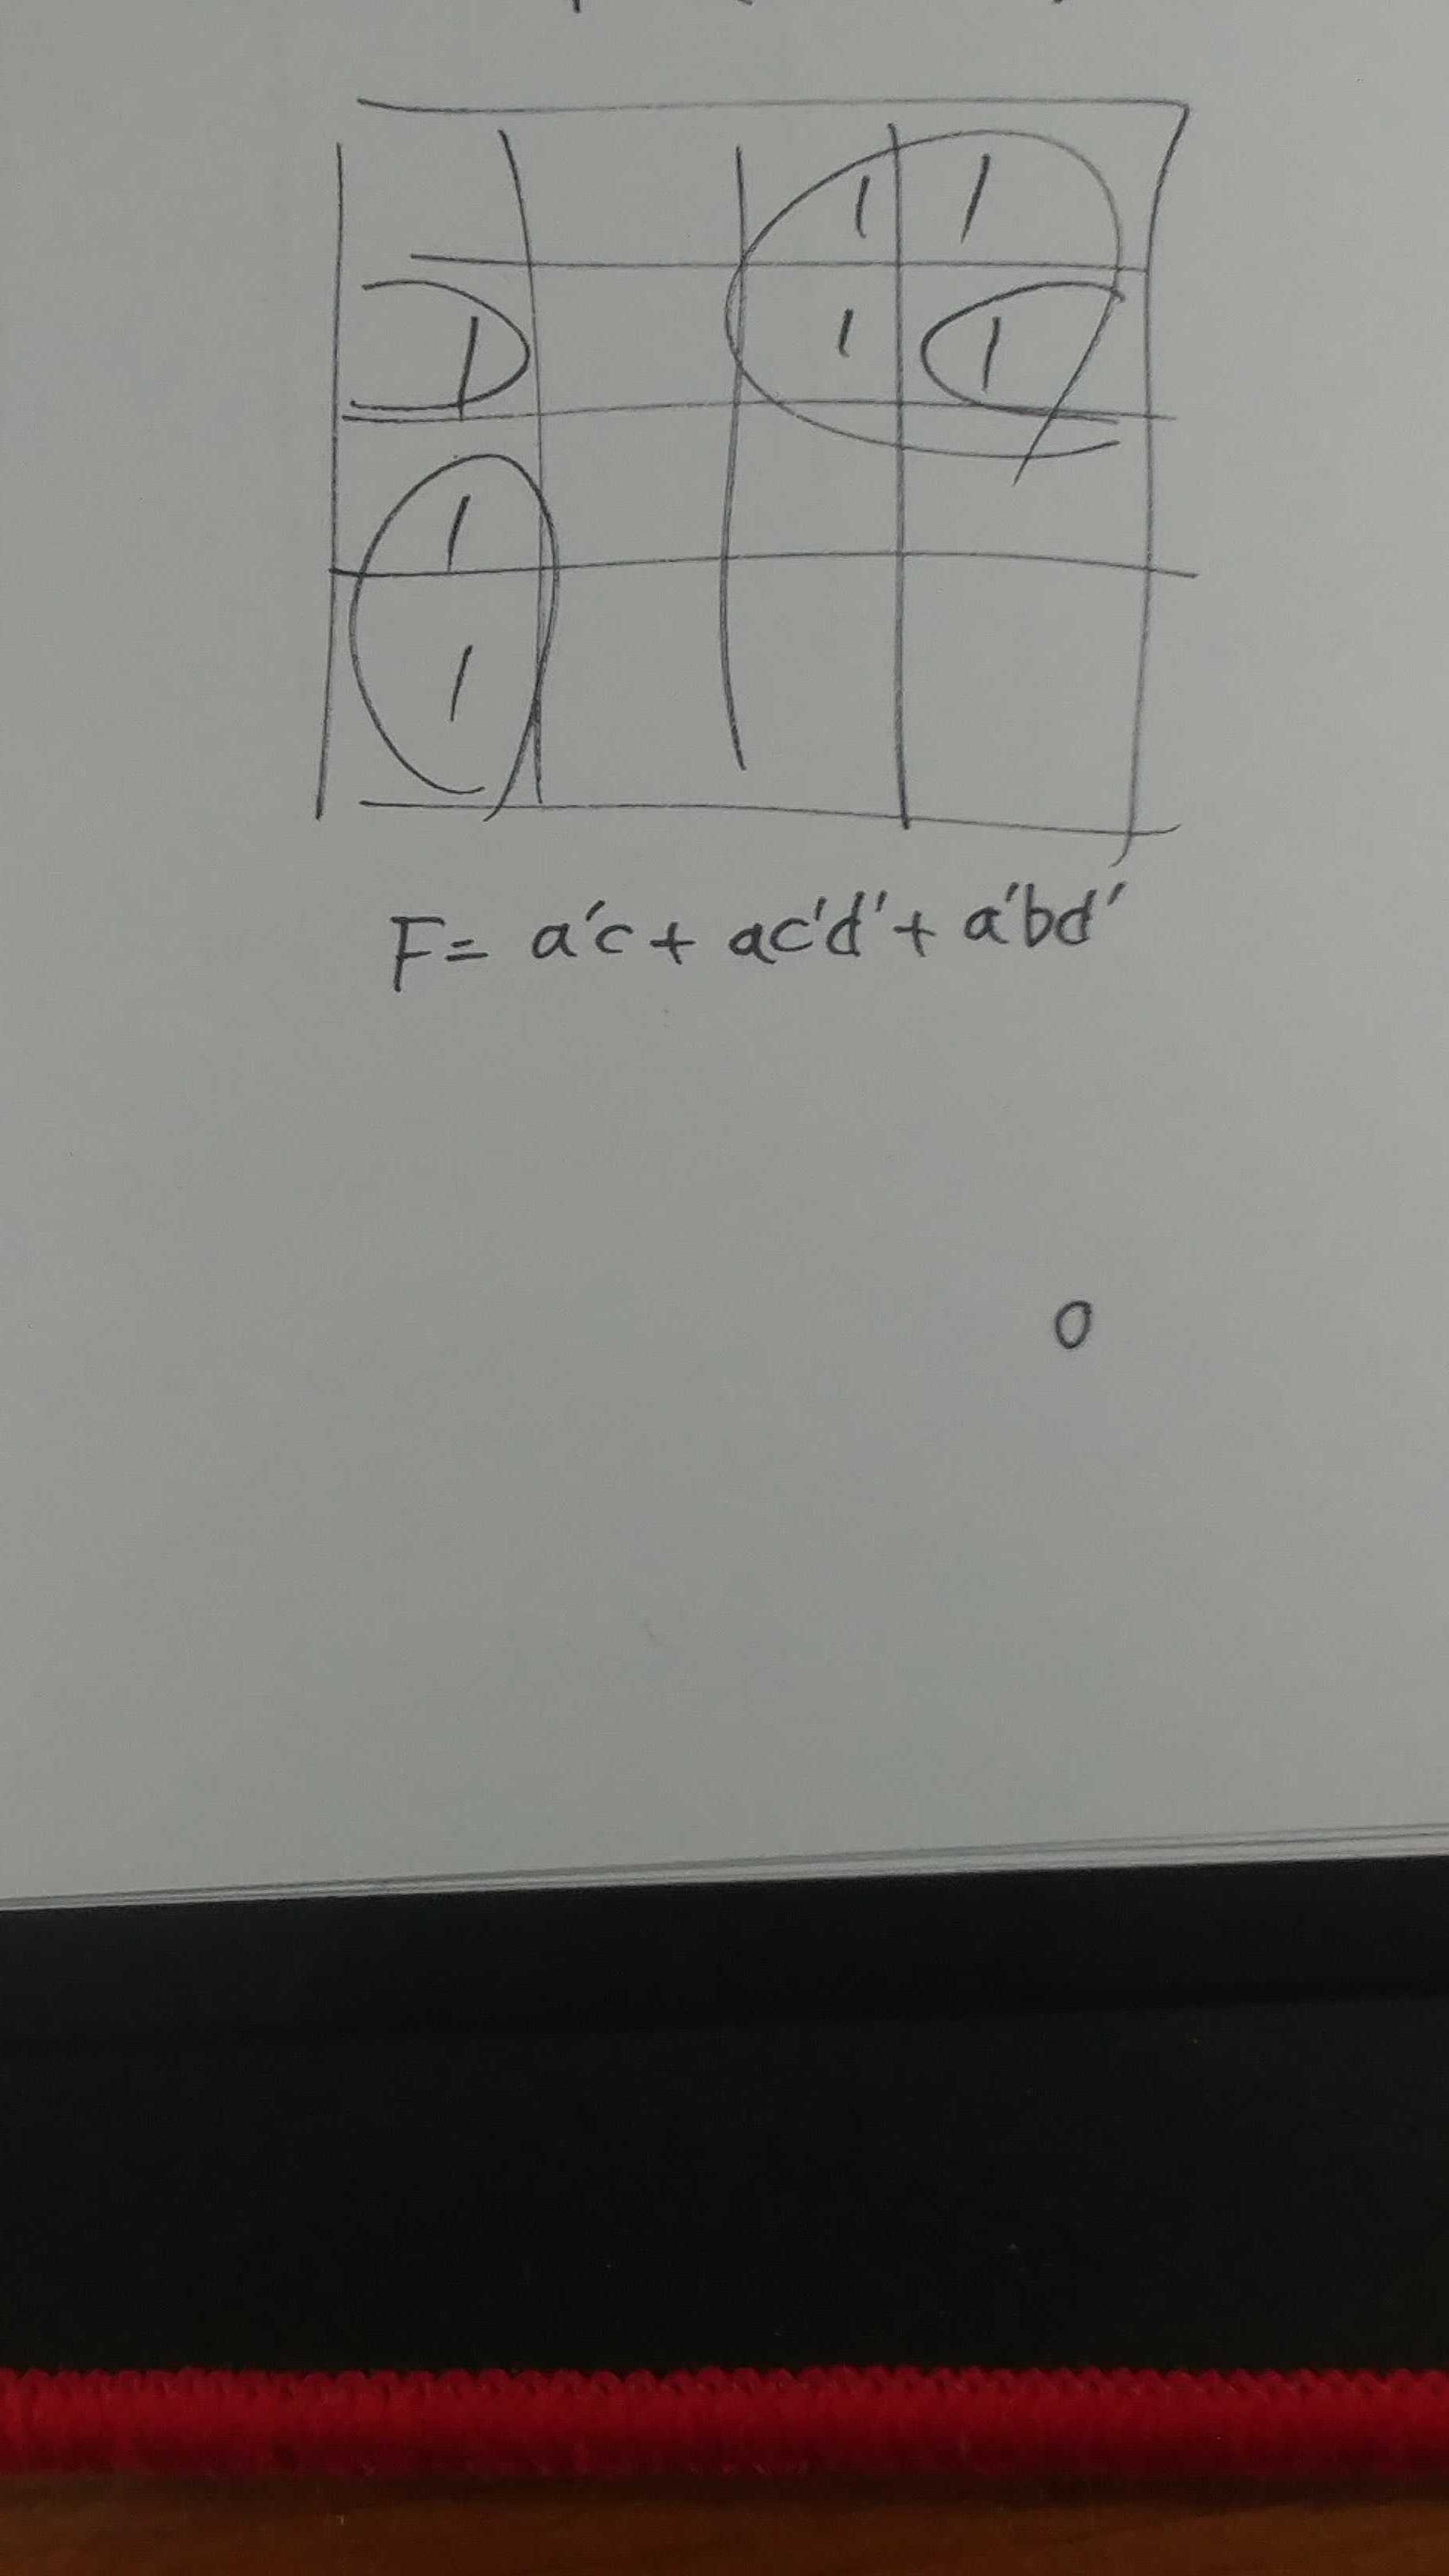 1 1
1 1 1
1
1
F= a'c + ac'd' + a'bd'
0